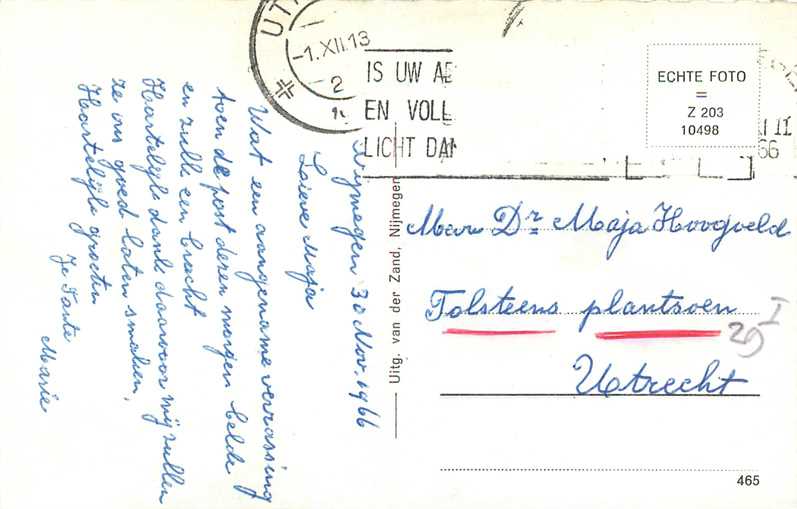 Nijmegen 30 Nov. 1966
Lieve Maja
Wat een aangename verrassing
toen de post dezen morgen belde
en zulk een bracht
Hartelijk dank daarvoor wij zullen
ze ons goed laten smaken,
Hartelijke groeten
Je Tante
Marie
UT
-1.XII.13
2
IS UW AD
EN VOLL
LICHT DAN
66
ECHTE FOTO
=
Z 203
10498
Uitg. van der Zand, Nijmegen
Mevr Dr Maja Hoogveld
Tolsteens plantsoen
29 I
Utrecht
465